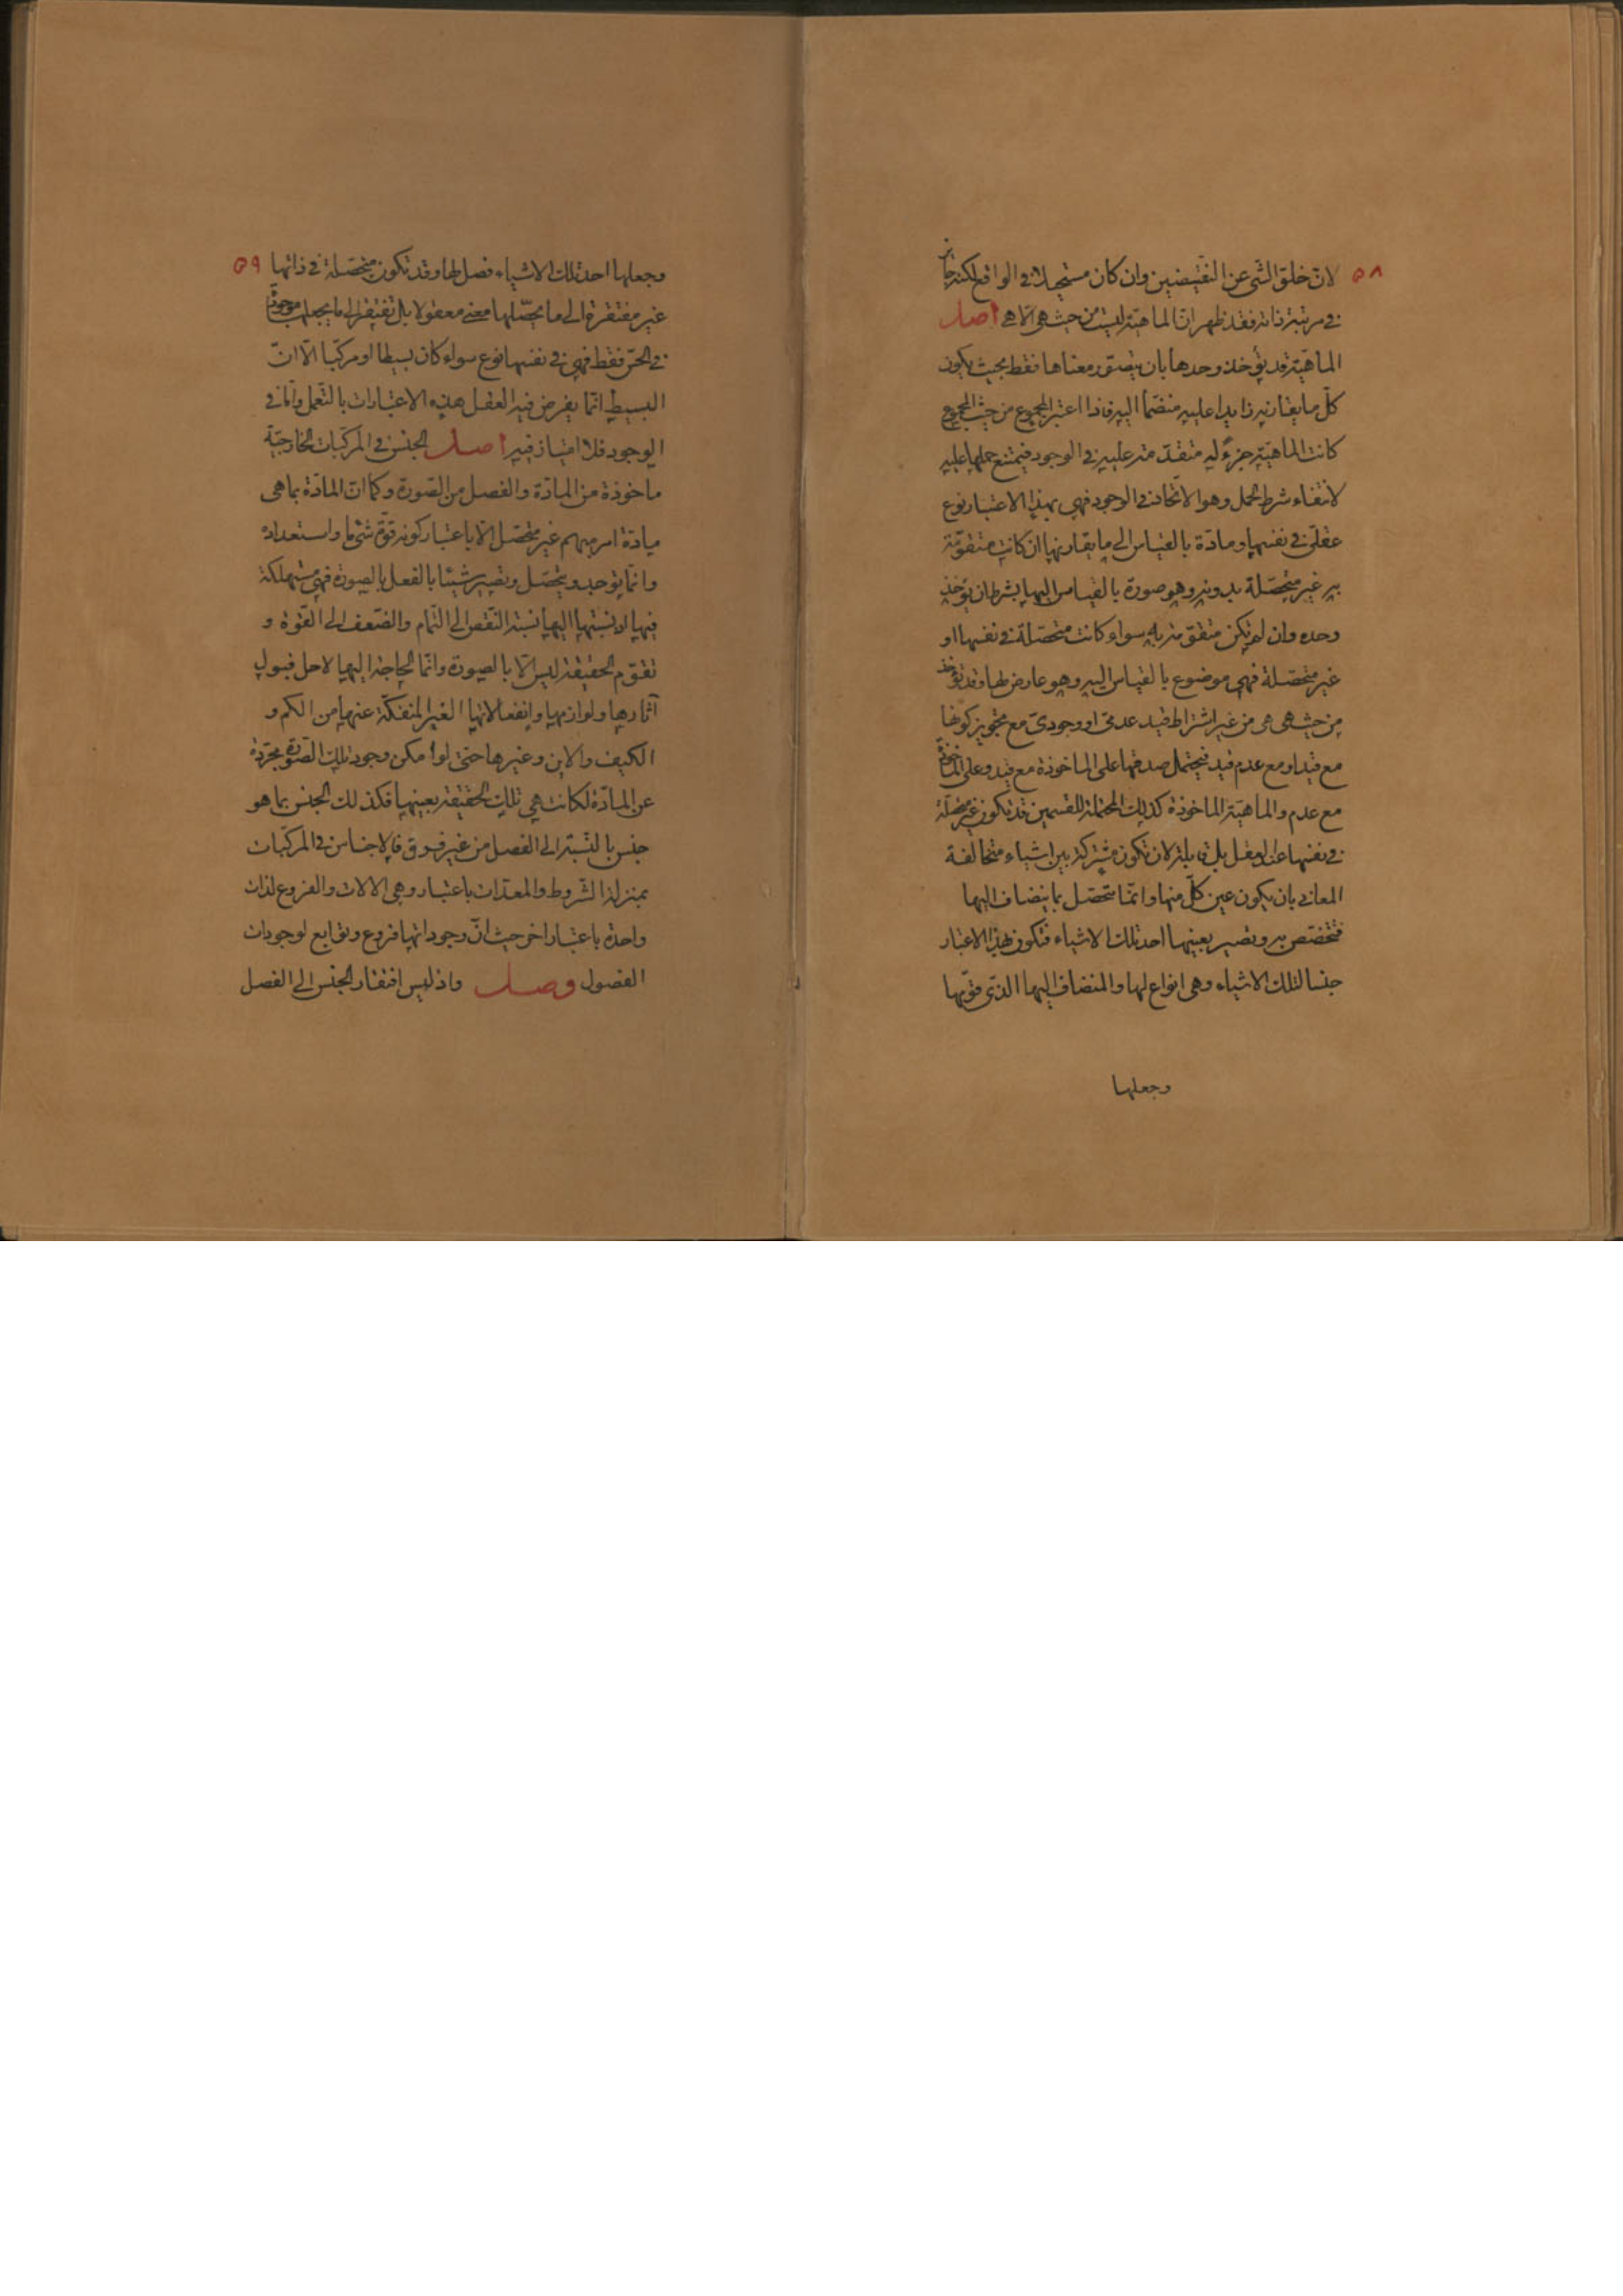 ۵۸ لان خلق الشی عن النقیضین وان کان مستحیلا فی الواقع لکنه جائز
فی مرتبة ذاته فقد ظهر ان الماهیّة لیست من حیث هی الا هی اصل
الماهیّة قد یؤخذ وحدها بان یتصوّر معناها فقط بحیث یکون
کلّ ما یقارنه زایدا علیه منضمّا الیه فاذا اعتبر المجموع من حیث المجموع
کانت الماهیّة جزءً له متقدّمة علیه فی الوجود فیمتنع حملها علیه
لانتفاء شرط الحمل وهو الاتّحاد فی الوجود فهی بهذا الاعتبار نوع
عقلیّ فی نفسها ومادّة بالقیاس الی ما یقارنها ان کانت متقوّمة
به غیر متحصّلة بدونه وهو صورة بالقیاس الیها بشرط ان یؤخذ
وحده وان لم تکن متقوّمة به سواء کانت متحصّلة فی نفسها او
غیر متحصّلة فهی موضوع بالقیاس الیه وهو عارض لها وقد تؤخذ
من حیث هی هی من غیر اشتراط قید عدمیّ او وجودیّ مع تجویز کونها
مع قید او مع عدم قید فیحتمل صدقها علی الماخوذة مع قید وعلی الماخوذة
مع عدمه والماهیّة الماخوذة کذلک المحتملة للقسمین قد تکون غیر متحصّلة
فی نفسها عند العقل بل قابلة لان تکون مشترکة بین اشیاء متخالفة
المعانی بان یکون عین کلّ منها وانّما تتحصّل بما ینضاف الیها
فتخصّص به وتصیر بعینها احد تلک الاشیاء فتکون بهذا الاعتبار
جنسا لتلک الاشیاء وهی انواع لها والمنضاف الیها الذی قوّمها
وجعلها
۵۹ وجعلها احد تلک الاشیاء فصل لها وقد تکون متحصّلة فی ذاتها
غیر مفتقرة الی ما یحصّلها معنی معقولا بل تفتقر الی ما یجعلها موجودة
فی الحسّ فقط فهی فی نفسها نوع سواء کان بسیطا او مرکّبا الّا انّ
البسیط انّما یفرض فیه العقل هذه الاعتبارات بالتعمّل وامّا فی
الوجود فلا امتیاز فیه اصل الجنس فی المرکّبات الخارجیّة
ماخوذة من المادّة والفصل من الصّورة وکما انّ المادّة بما هی
مادّة امر مبهم غیر متحصّل الّا باعتبار کونه قوّة شیٔ ما واستعداده
وانّما یوجد ویتحصّل ویصیر شیئا بالفعل بالصورة فهی مستهلکة
فیها اذ نسبتها الیها نسبة النّقص الی التّمام والضّعف الی القوّة و
تقوّم الحقیقة لیس الّا بالصورة وانّما الحاجة الیها لاجل قبول
آثارها ولوازمها وانفعالاتها الغیر المنفکّة عنها من الکم و
الکیف والاین وغیرها حتی لو امکن وجود تلک الصّورة مجرّدة
عن المادّة لکانت هی تلک الحقیقة بعینها فکذلک الجنس بما هو
جنس بالنّسبة الی الفصل من غیر فرق فالاجناس فی المرکّبات
بمنزلة الشّروط والمعدّات باعتبار وهی الالات والفروع لذات
واحدة باعتبار اخر حیث انّ وجوداتها فروع وتوابع لوجودات
الفصول وصل واذ لیس افتقار الجنس الی الفصل